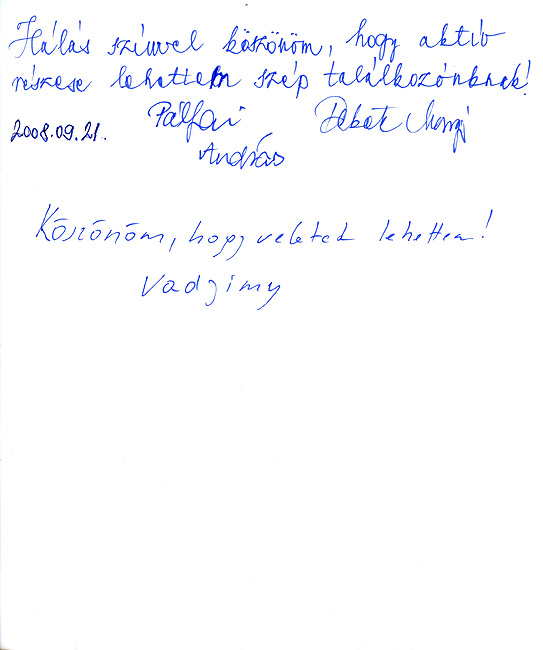 Hálás szívvel köszönöm, hogy aktív
részese lehettem szép találkozónknak!
2008.09.21. Pálfai
András
Köszönöm, hogy veletek lehettem!